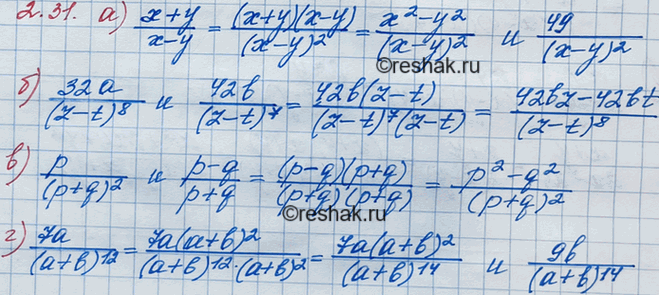 2.31. а) (x+y)/(x-y) = ((x+y)(x-y))/(x-y)² = (x²-y²)/(x-y)² и 49/(x-y)²
©reshak.ru
б) 32a/(z-t)⁸ и 42b/(z-t)⁷ = 42b(z-t)/((z-t)⁷(z-t)) = (42bz-42bt)/(z-t)⁸
в) p/(p+q)² и (p-q)/(p+q) = ((p-q)(p+q))/((p+q)(p+q)) = (p²-q²)/(p+q)²
©reshak.ru
г) 7a/(a+b)¹² = 7a(a+b)²/((a+b)¹²·(a+b)²) = 7a(a+b)²/(a+b)¹⁴ и 9b/(a+b)¹⁴